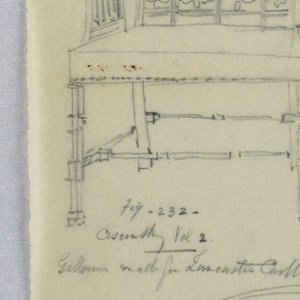 Fig - 232 -
Cescinsky Vol 2.
Gillows made for Lancaster Castl